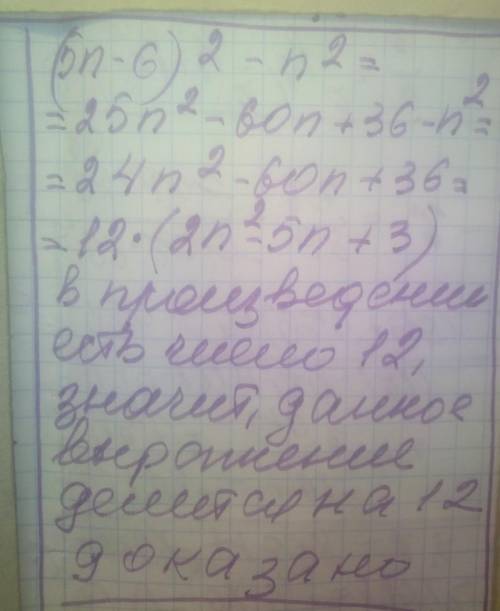 (5n-6)² - n² =
= 25n² - 60n + 36 - n² =
= 24n² - 60n + 36 =
= 12·(2n² - 5n + 3)
в произведении
есть число 12,
значит, данное
выражение
делится на 12
доказано